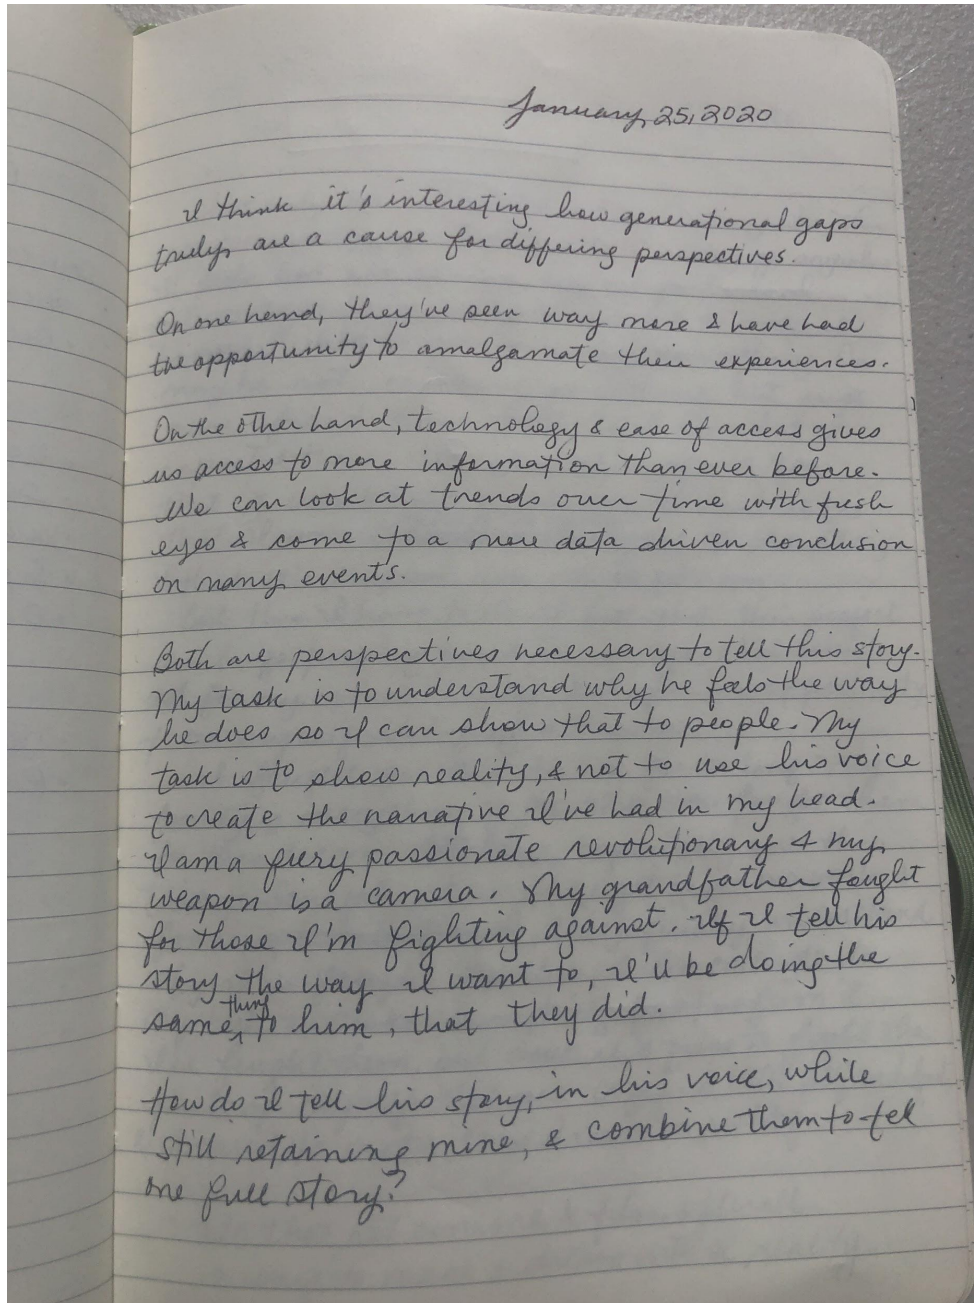 January 25, 2020
I think it's interesting how generational gaps
truly are a cause for differing perspectives.
On one hand, they've seen way more & have had
the opportunity to amalgamate their experiences.
On the other hand, technology & ease of access gives
us access to more information than ever before.
We can look at trends over time with fresh
eyes & come to a more data driven conclusion
on many events.
Both are perspectives necessary to tell this story.
My task is to understand why he feels the way
he does so I can show that to people. My
task is to show reality, & not to use his voice
to create the narrative I've had in my head.
I am a fiery passionate revolutionary & my
weapon is a camera. My grandfather fought
for those I'm fighting against. If I tell his
story the way I want to, I'll be doing the
same thing to him, that they did.
How do I tell his story, in his voice, while
still retaining mine, & combine them to tell
one full story?